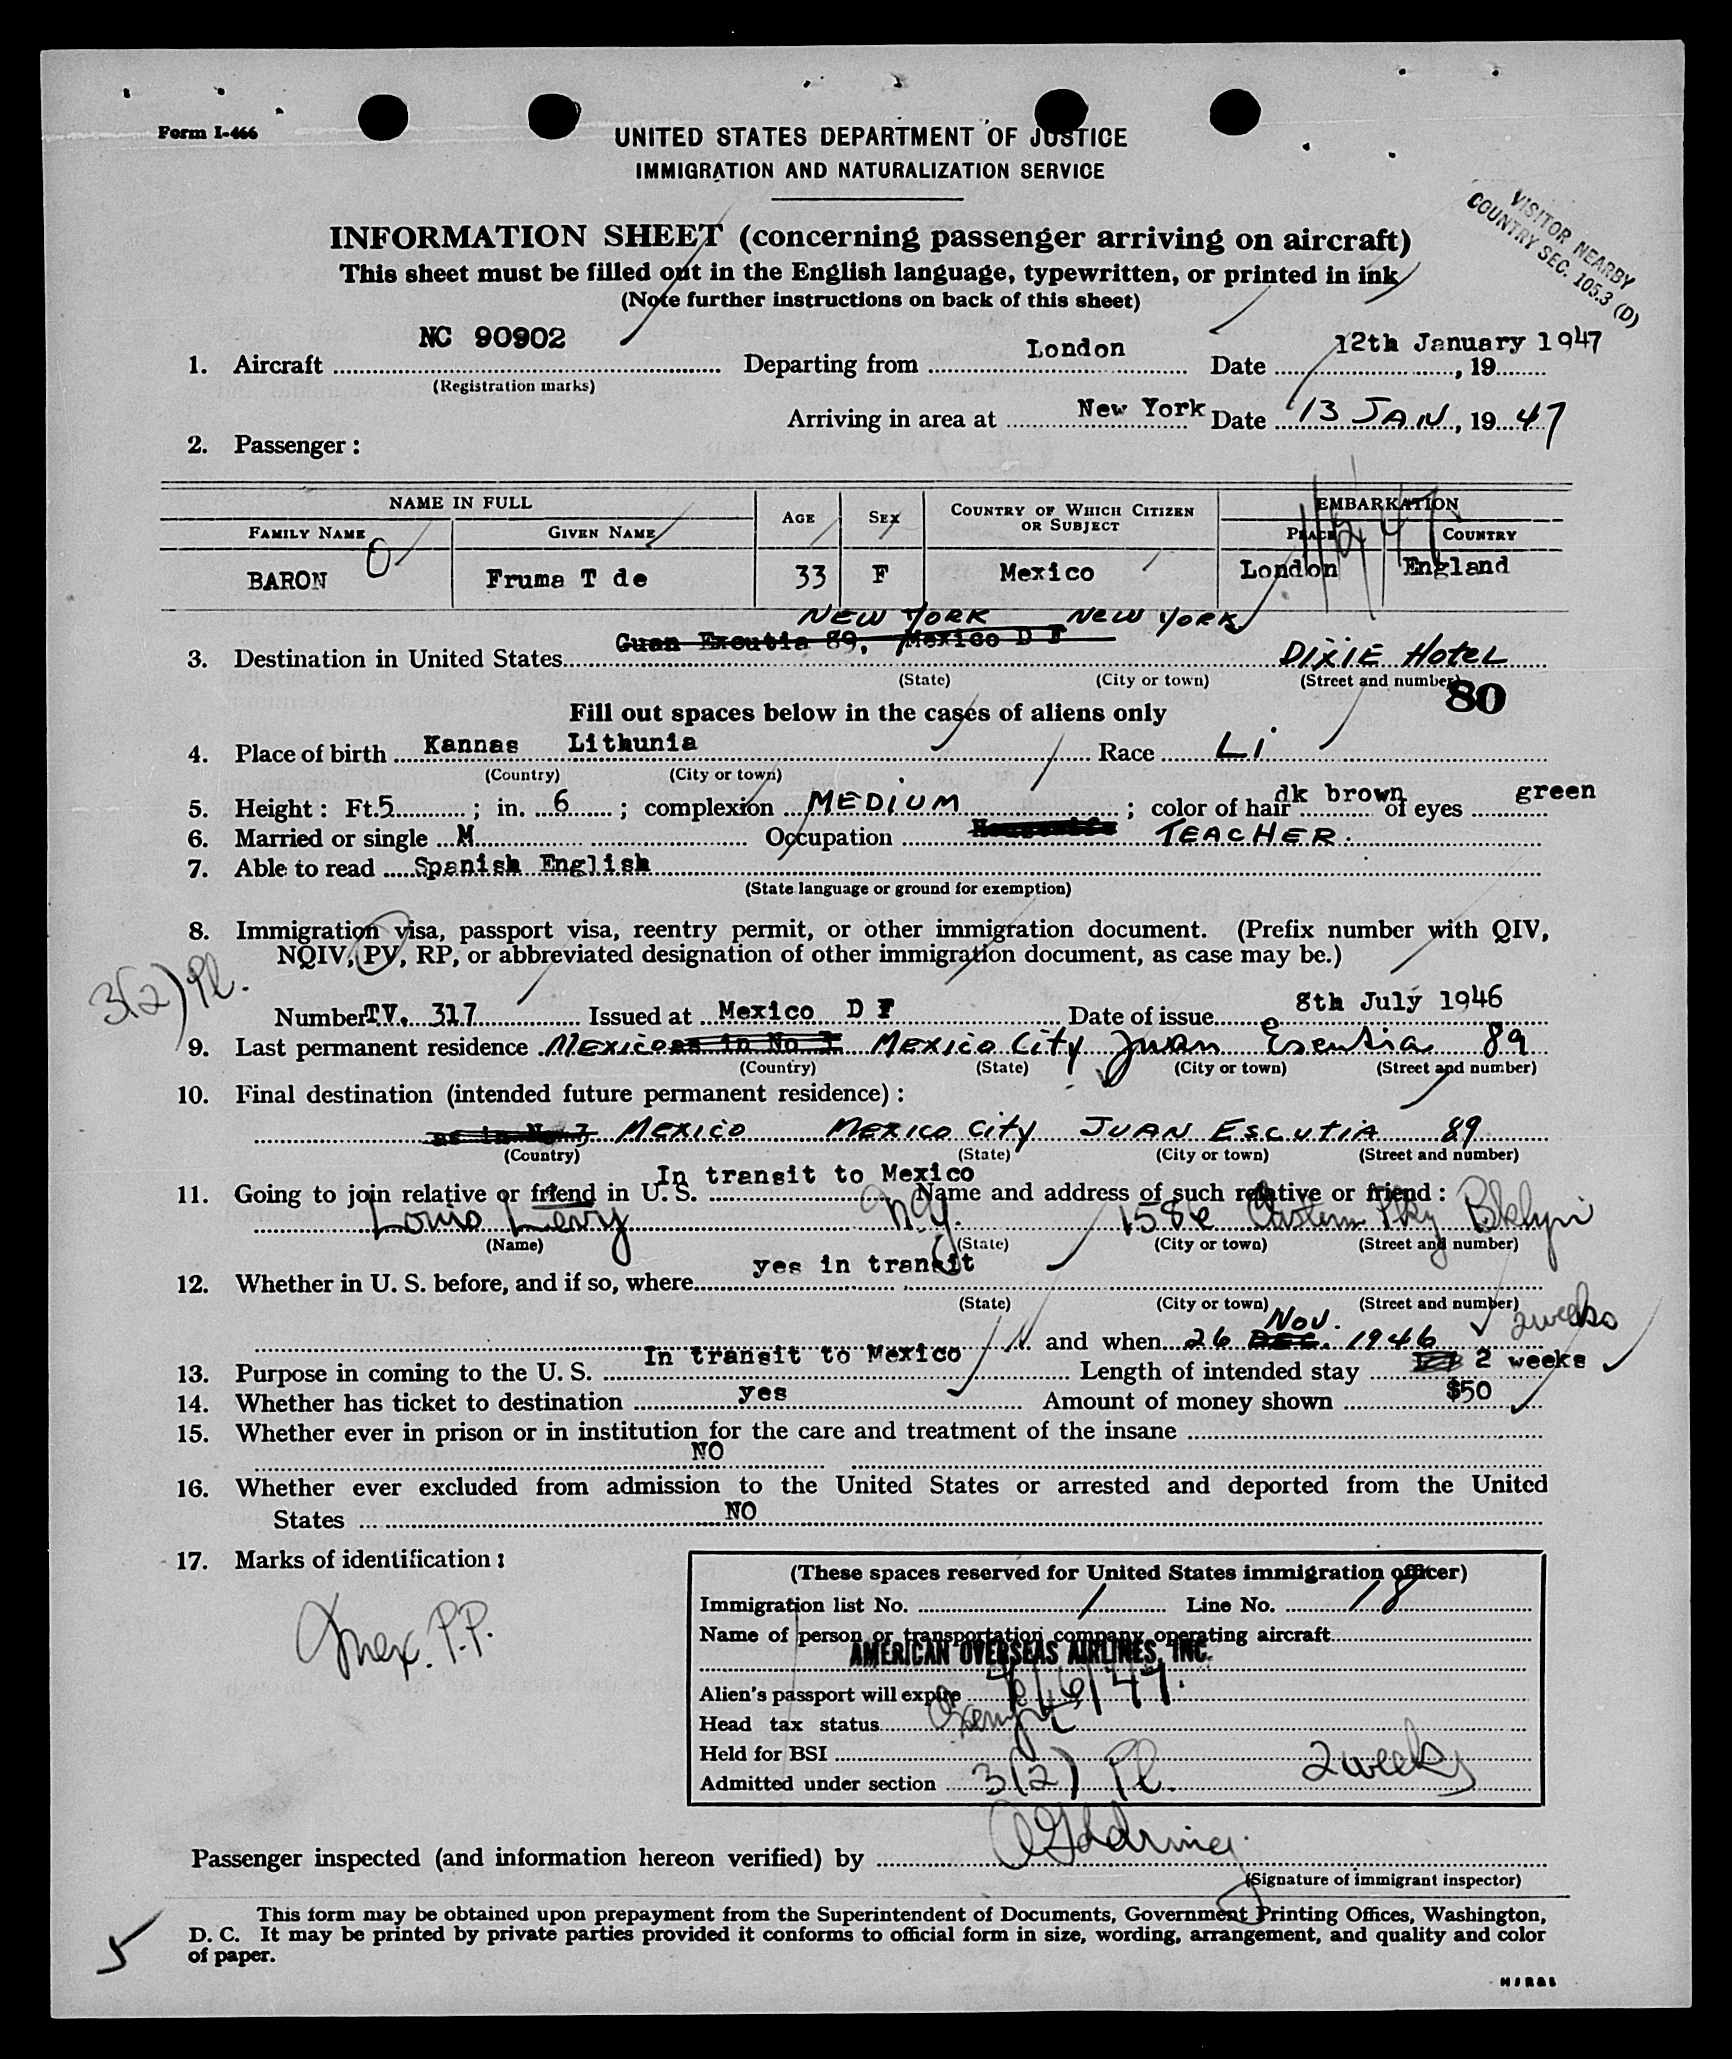 Form I-466
UNITED STATES DEPARTMENT OF JUSTICE
IMMIGRATION AND NATURALIZATION SERVICE
VISITOR NEARBY
COUNTRY SEC. 105.3 (D)
INFORMATION SHEET (concerning passenger arriving on aircraft)
This sheet must be filled out in the English language, typewritten, or printed in ink
(Note further instructions on back of this sheet)
1. Aircraft NC 90902 Departing from London Date 12th January 1947, 19
(Registration marks)
Arriving in area at New York Date 13 JAN, 1947
2. Passenger:
NAME IN FULL AGE SEX COUNTRY OF WHICH CITIZEN OR SUBJECT EMBARKATION
FAMILY NAME GIVEN NAME PLACE COUNTRY
BARON Fruma T de 33 F Mexico London England
NEW YORK NEW YORK
Guan Excutia 89, Mexico D F
3. Destination in United States DIXIE HOTEL
(State) (City or town) (Street and number)
80
Fill out spaces below in the cases of aliens only
4. Place of birth Kannas Lithunia Race Li
(Country) (City or town)
5. Height: Ft. 5; in. 6; complexion MEDIUM; color of hair dk brown of eyes green
6. Married or single M Occupation Housewife TEACHER.
7. Able to read Spanish English
(State language or ground for exemption)
8. Immigration visa, passport visa, reentry permit, or other immigration document. (Prefix number with QIV,
NQIV, PV, RP, or abbreviated designation of other immigration document, as case may be.)
3(2) Pl.
Number TV. 317 Issued at Mexico D F Date of issue 8th July 1946
9. Last permanent residence MEXICO as in No 3 MEXICO City Juan Esentia 89
(Country) (State) (City or town) (Street and number)
10. Final destination (intended future permanent residence):
as in No 3 MEXICO MEXICO City JUAN ESCUTIA 89
(Country) (State) (City or town) (Street and number)
11. Going to join relative or friend in U. S. In transit to Mexico Name and address of such relative or friend:
Louis Levy N.Y. 1586 Eastern Pky Bklyn
(Name) (State) (City or town) (Street and number)
12. Whether in U. S. before, and if so, where yes in transit
(State) (City or town) (Street and number)
and when 26 DEC. Nov. 1946 2 weeks
13. Purpose in coming to the U. S. In transit to Mexico Length of intended stay 2 weeks
14. Whether has ticket to destination yes Amount of money shown $50
15. Whether ever in prison or in institution for the care and treatment of the insane
NO
16. Whether ever excluded from admission to the United States or arrested and deported from the United
States NO
17. Marks of identification:
Mex. P.P.
(These spaces reserved for United States immigration officer)
Immigration list No. 1 Line No. 18
Name of person or transportation company operating aircraft
AMERICAN OVERSEAS AIRLINES, INC.
Alien's passport will expire
Head tax status Exempt
Held for BSI
Admitted under section 3(2) Pl. 2 weeks
Passenger inspected (and information hereon verified) by
(Signature of immigrant inspector)
This form may be obtained upon prepayment from the Superintendent of Documents, Government Printing Offices, Washington,
D. C. It may be printed by private parties provided it conforms to official form in size, wording, arrangement, and quality and color
of paper.
5